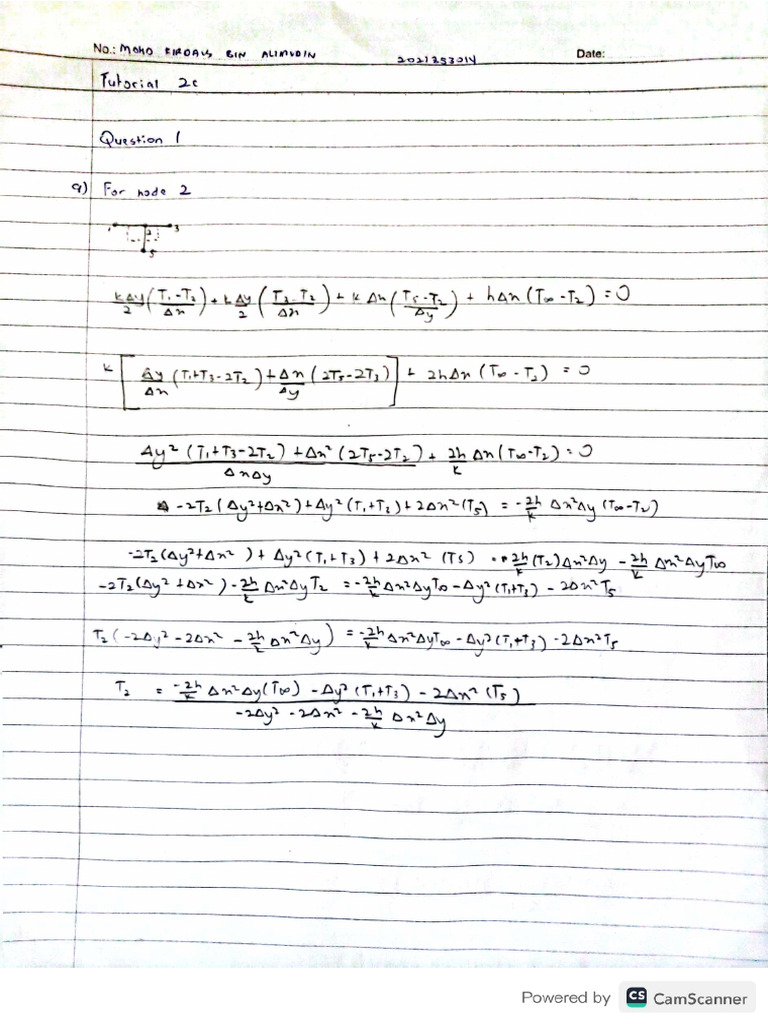 No.: MOHD FIRDAUS BIN ALIMUDIN 2021253014 Date:
Tutorial 2c
Question 1
a) For node 2
1 2 3
5
kΔy/2 (T₁-T₂/Δx) + kΔy/2 (T₃-T₂/Δx) + kΔx (T₅-T₂/Δy) + hΔx (T∞-T₂) = 0
k [Δy/Δx (T₁+T₃-2T₂) + Δx/Δy (2T₅-2T₃)] + 2hΔx (T∞-T₂) = 0
Δy² (T₁+T₃-2T₂) + Δx² (2T₅-2T₂)/ΔxΔy + 2h/k Δx (T∞-T₂) = 0
-2T₂ (Δy²+Δx²) + Δy² (T₁+T₃) + 2Δx² (T₅) = -2h/k Δx²Δy (T∞-T₂)
-2T₂ (Δy²+Δx²) + Δy² (T₁+T₃) + 2Δx² (T₅) = 2h/k (T₂) Δx²Δy - 2h/k Δx²Δy T∞
-2T₂ (Δy²+Δx²) - 2h/k Δx²Δy T₂ = -2h/k Δx²Δy T∞ - Δy² (T₁+T₃) - 2Δx² T₅
T₂ (-2Δy² - 2Δx² - 2h/k Δx²Δy) = -2h/k Δx²Δy T∞ - Δy² (T₁+T₃) - 2Δx² T₅
T₂ = -2h/k Δx²Δy (T∞) - Δy² (T₁+T₃) - 2Δx² (T₅)/-2Δy² - 2Δx² - 2h/k Δx²Δy
Powered by CS CamScanner